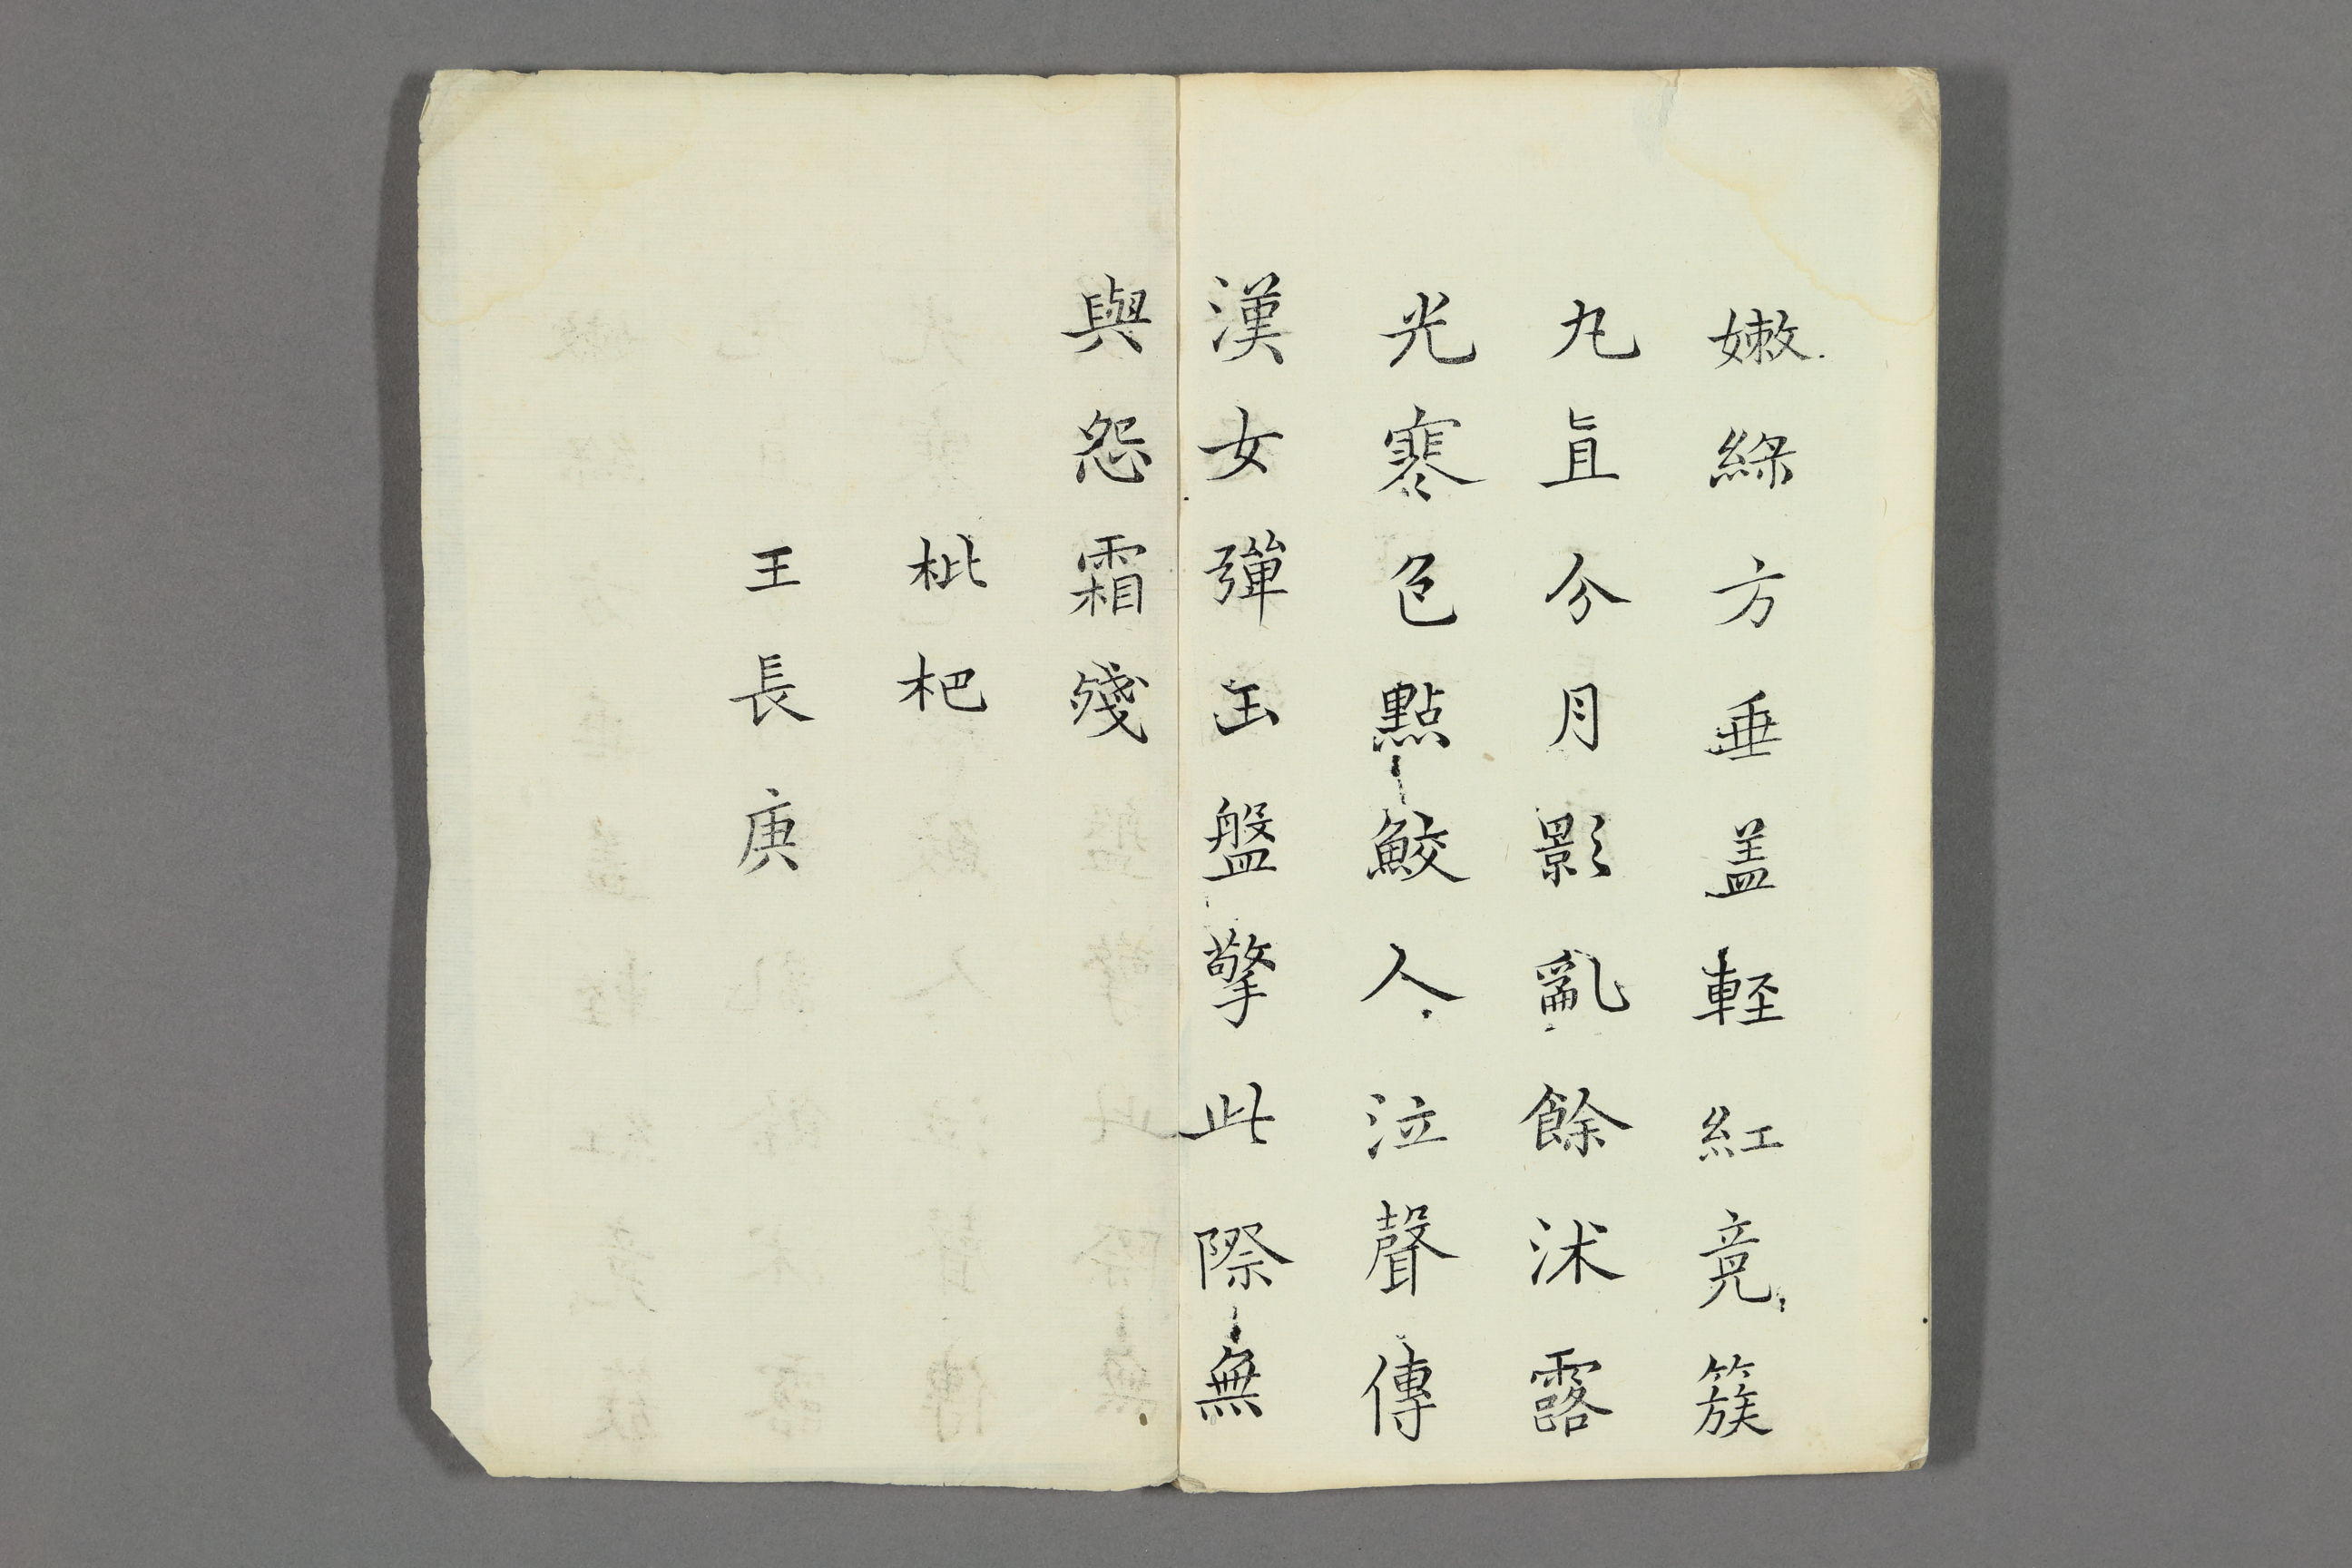 嫩綠方垂盖輕紅竟簇
九真分月影亂餘沭露
光寒色點鮫人泣聲傳
漢女彈玉盤擎此際無
與怨霜殘
枇杷
王長庚